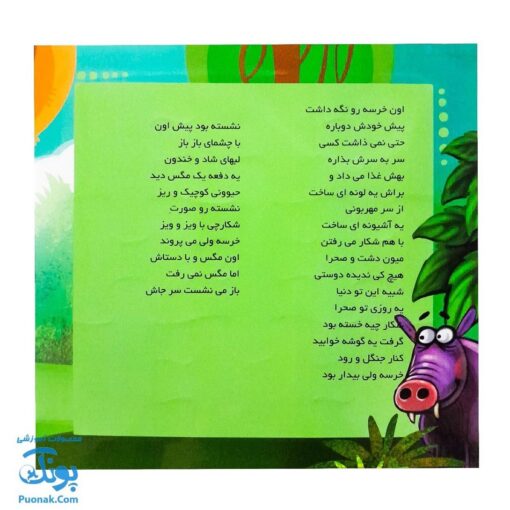 اون خرسه رو نگه داشت
پیش خودش دوباره
حتی نمی ذاشت کسی
سر به سرش بذاره
بهش غذا می داد و
براش یه لونه ای ساخت
از سر مهربونی
یه آشیونه ای ساخت
با هم شکار می رفتن
میون دشت و صحرا
هیچ کی ندیده دوستی
شبیه این تو دنیا
یه روزی تو صحرا
شکار چیه خسته بود
گرفت یه گوشه خوابید
کنار جنگل و رود
خرسه ولی بیدار بود
نشسته بود پیش اون
با چشمای باز باز
لبهای شاد و خندون
یه دفعه یک مگس دید
حیوونی کوچیک و ریز
نشسته رو صورت
شکارچی با ویز و ویز
خرسه ولی می پروند
اون مگس و با دستاش
اما مگس نمی رفت
باز می نشست سر جاش
محصولات آموزشی
پونک
Puonak.Com